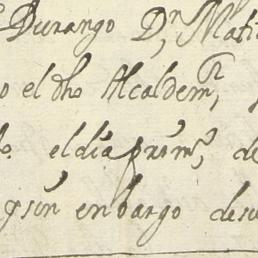 Durango Dn, Mati
o el dho Alcaldemr,
el dia proxmo, de
y sin embargo de su